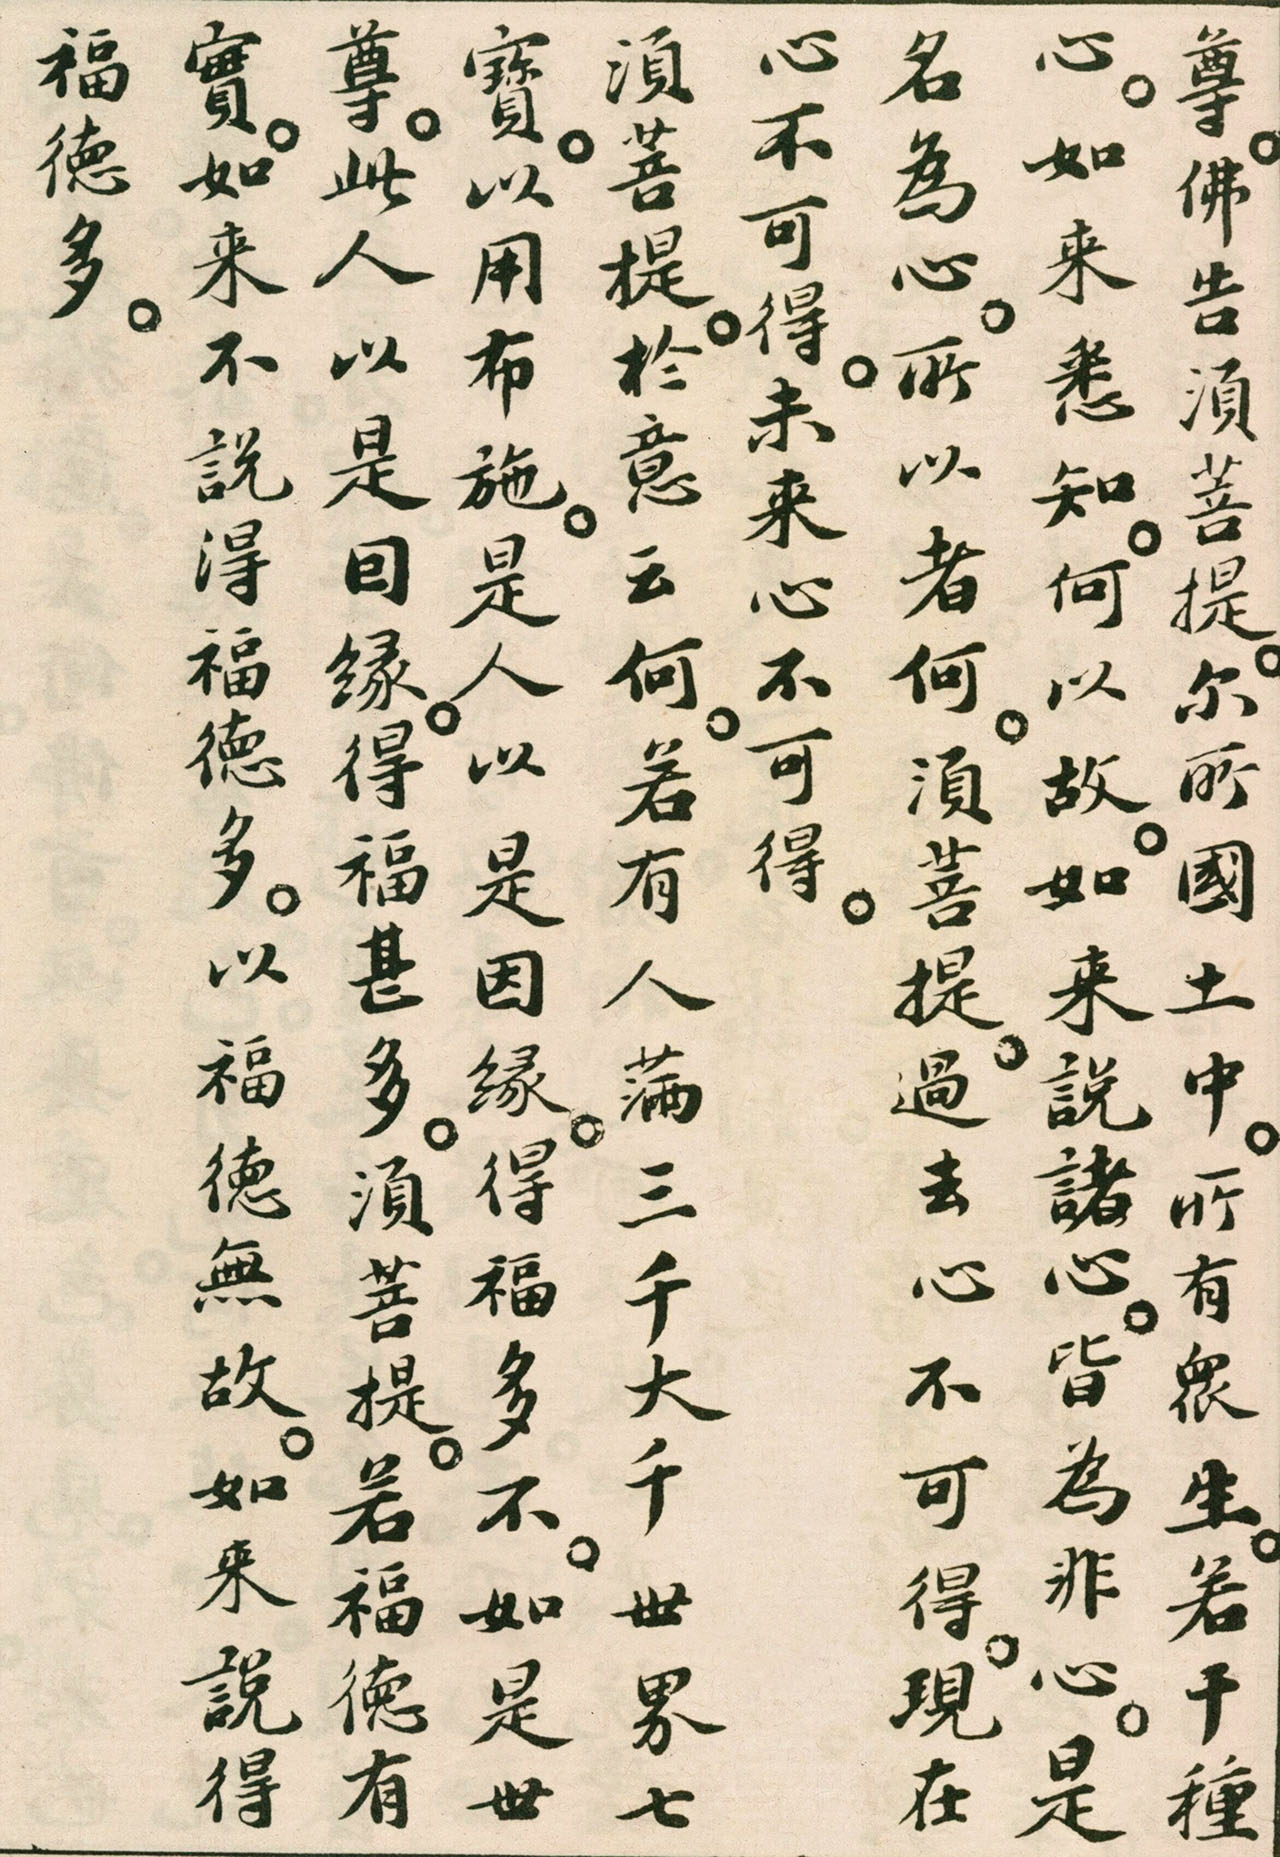 尊。佛告須菩提。尔所國土中。所有眾生。若干種
心。如来悉知。何以故。如来說諸心。皆為非心。是
名為心。所以者何。須菩提。過去心不可得。現在
心不可得。未来心不可得。
須菩提。於意云何。若有人滿三千大千世界七
寶。以用布施。是人以是因緣。得福多不。如是世
尊。此人以是因緣。得福甚多。須菩提。若福德有
實。如来不說得福德多。以福德無故。如来說得
福德多。